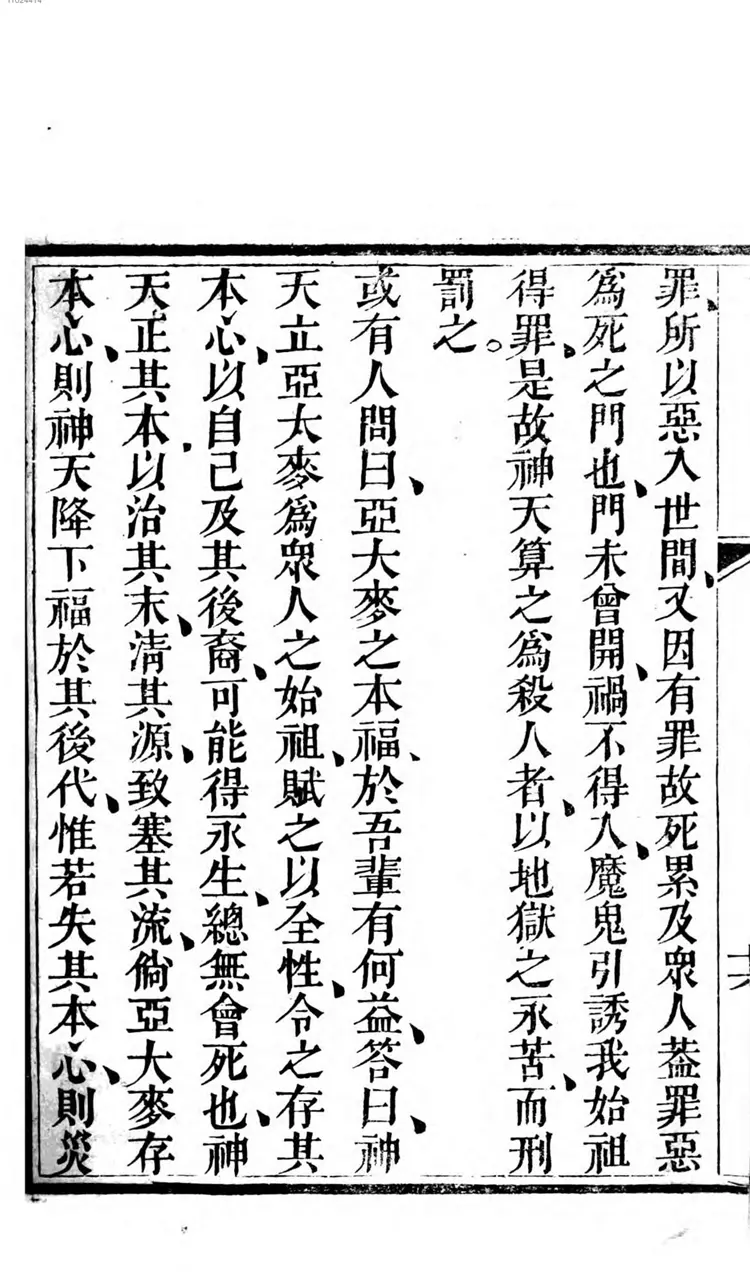 罪、所以惡入世間、又因有罪故死累及衆人葢罪惡
爲死之門也、門未曾開、禍不得入、魔鬼引誘我始祖
得罪、是故神天算之爲殺人者、以地獄之永苦、而刑
罰之。
或有人問曰、亞大麥之本福、於吾輩有何益、答曰、神
天立亞太麥爲衆人之始祖、賦之以全性、令之存其
本心、以自己及其後裔、可能得永生、總無會死也、神
天正其本、以治其末、清其源、致塞其流、倘亞大麥存
本心、則神天降下福於其後代、惟若失其本心、則災